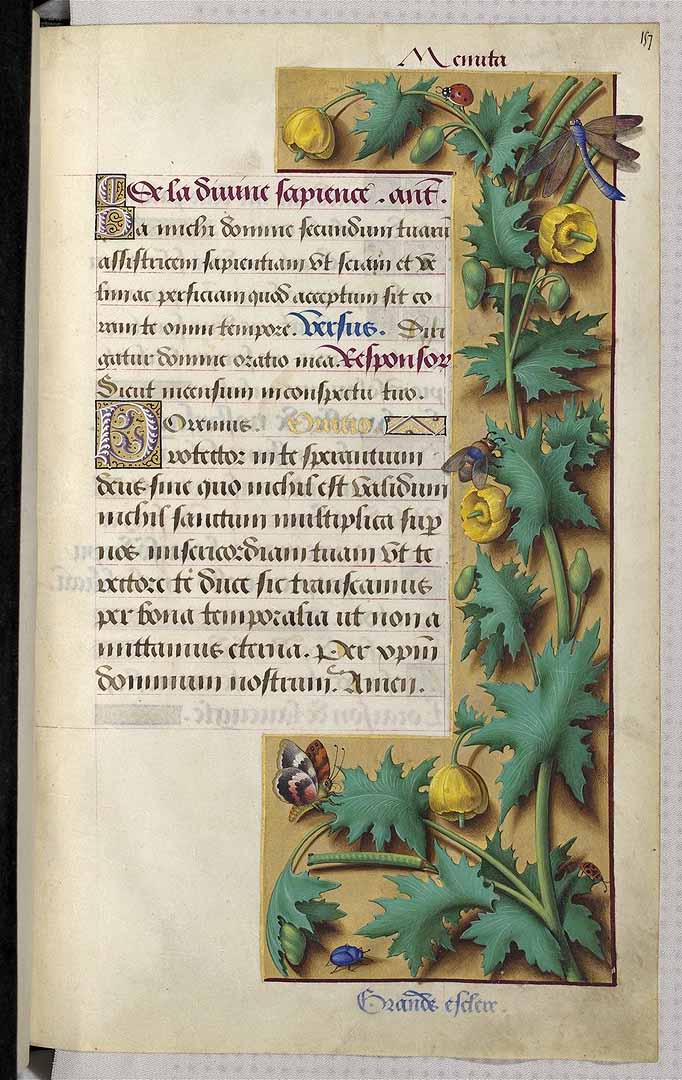 157
Memita
De la divine sapience. ant.
Da michi domine secundum tuarū
assistricem sapientiam vt sciam et ve
lim ac perficiam quod acceptum sit co
ram te omni tempore. Versus. Diri
gatur domine oratio mea. Responsor
Sicut incensum in conspectu tuo.
Oremus. Oratio
Protector in te sperantium
deus sine quo nichil est validum
nichil sanctum multiplica sup
nos misericordiam tuam vt te
rectore te duce sic transeamus
per bona temporalia ut non a
mittamus eterna. Per xpm̄
dominum nostrum. Amen.
Grande esclere.